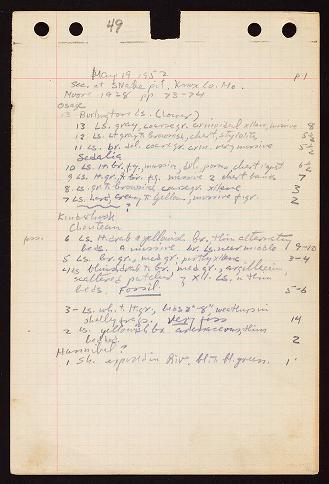 49
May 19 1952 p.1
Sec. at Snake pit, Knox Co. Mo.
Moore 1928 pp 73-74
Osage
13 Burlington Ls. (lower)
13 Ls. gray, coarse gr. crinoidal xlline, massive 8
12 Ls. lt gray to brownish, chert, stylolite 5½
11 Ls. br. dol. coarse gr. crin, very massive
Sedalia
10 Ls. lt br. fg, massive, dol, porous, chert
9 Ls. lt gr. to br. fg. massive 2 chert bands 7
8 Ls. gr. to brownish coarse gr. xlline 3
7 Ls. hard, cream to yellow, massive f. gr. 2
?
Kinderhook
Chouteau
6 Ls. lt drab & yellowish br. thin alternating
beds. A massive br. Ls. near middle 9-10
5 Ls. br. gr., med gr. partly xlline 3-4
4 Ls. drab to br. med gr., argillaceous,
scattered patches xll. Ls. in thin
beds. Fossil. 5-6
3- Ls. wh. to lt gr., beds 2"-8", weathers in
shelly frags. Very foss 14
2 Ls. yellowish br. thin
beds. 2
Hannibal?
1 Sh. exposed in Riv. bl. to bl. green. 1'